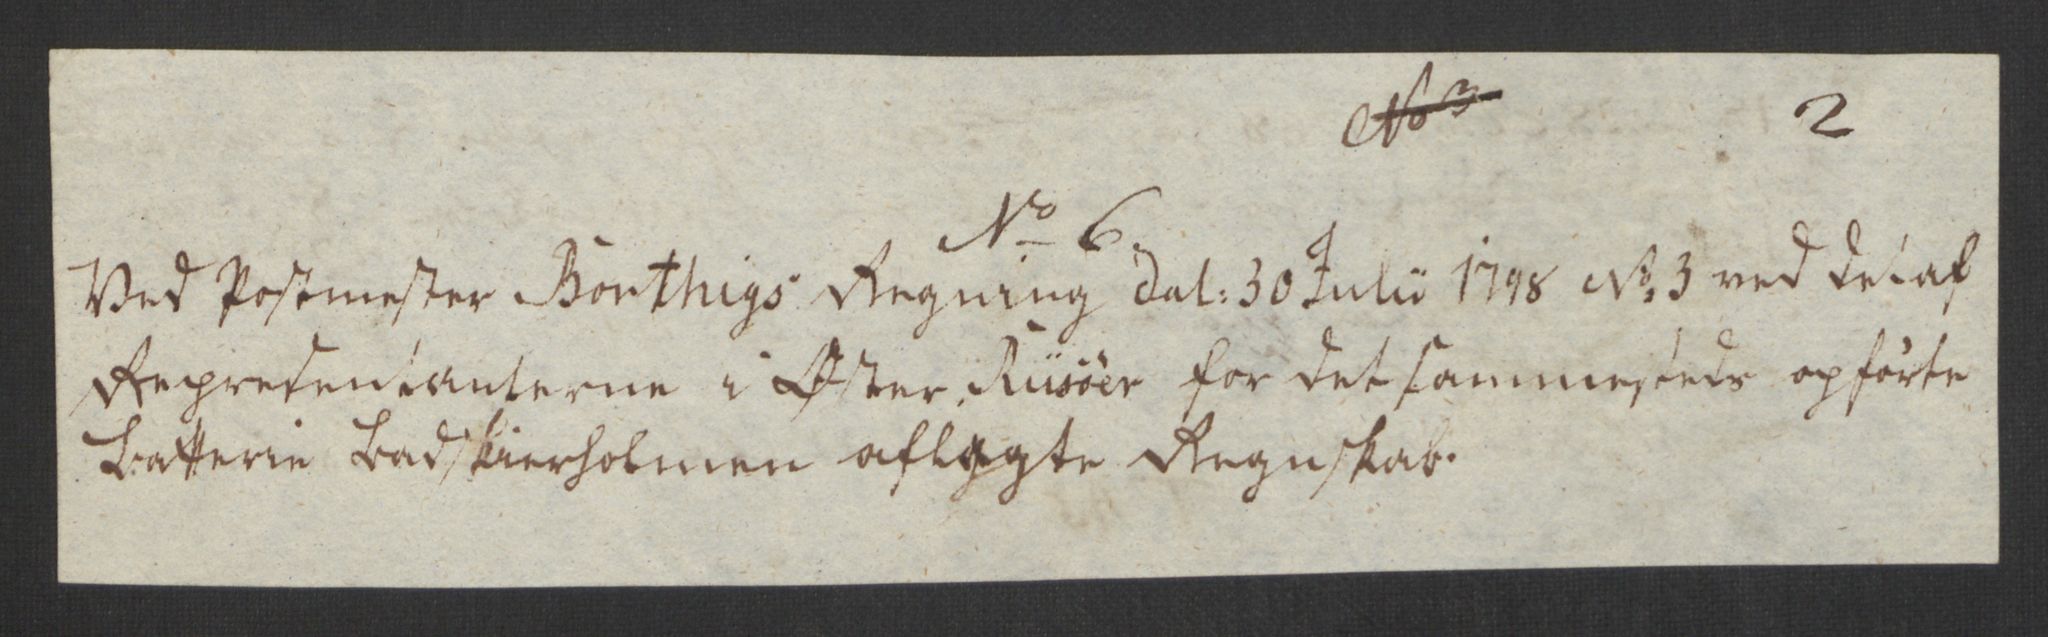 No 3
2
No 6.
Ved Postmester Borthigs Regning dat: 30 Julii 1798 No. 3 ved det af
Repræsentanterne i Øster Riisöer for det sammesteds opförte
Batterie Badskierholmen aflagte Regnskab.